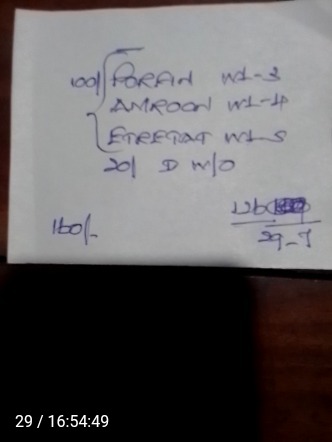 100/ PORFIN W1-3
AMROON W1-4
ETRETAT W1-5
20/ D W/O
160/-
29-7
29 / 16:54:49